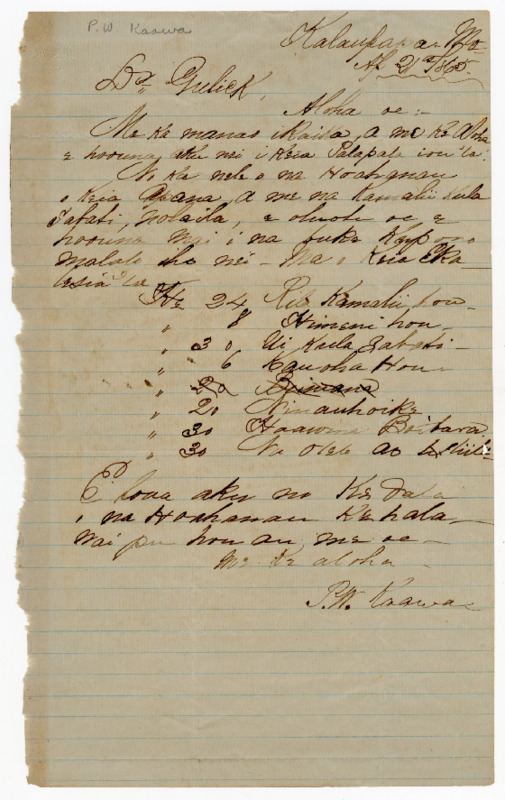 P. W. Kaawa
Kalaupapa. Mo
Ap 21st 1865.
Dr. Gulick,
Aloha oe:-
Me ka manao ikaika, a me ke Aloha
e hoouna aku nei i keia Palapala iou la.
No ka nele o na Hoahanau
o keia Apana, a me na Kamalii Kula
Sabati, nolaila, e oluolu oe e
hoouna mai i na buke
malalo iho nei - Ma o keia Eka
lesia la
He 24 Kamalii hou
" 8 Himeni hou
" 30 Ui Kula Sabati -
" 6 Kauoha Hou
" 20
" 20 Ninauhoike
" 30 Haawina Baibala
" 30
E loaa aku no ke dala
i na Hoahanau
mai pu hou au me oe -
Me ke aloha
P. W. Kaawa